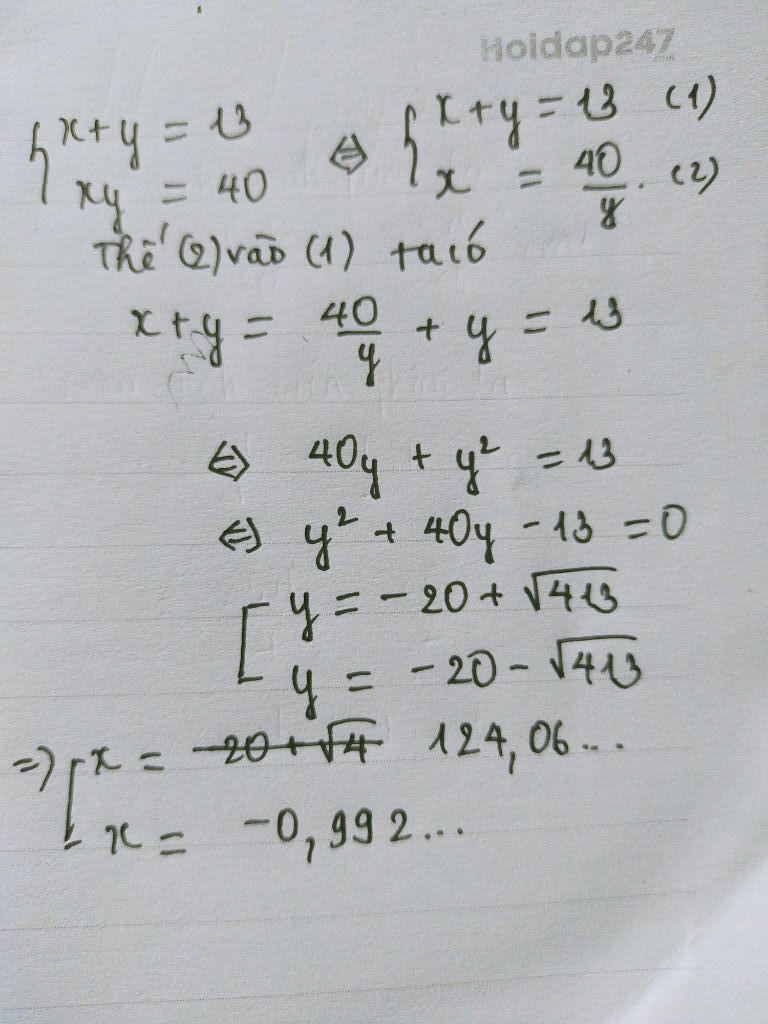 Hoidap247
.com
{ x + y = 13 ⇔ { x + y = 13 (1)
xy = 40 x = 40/y. (2)
Thế (2) vào (1) ta có
x + y = 40/y + y = 13
⇔ 40y + y² = 13
⇔ y² + 40y - 13 = 0
[ y = -20 + √413
y = -20 - √413
=> [ x = -20 + √4 124,06...
x = -0,992...